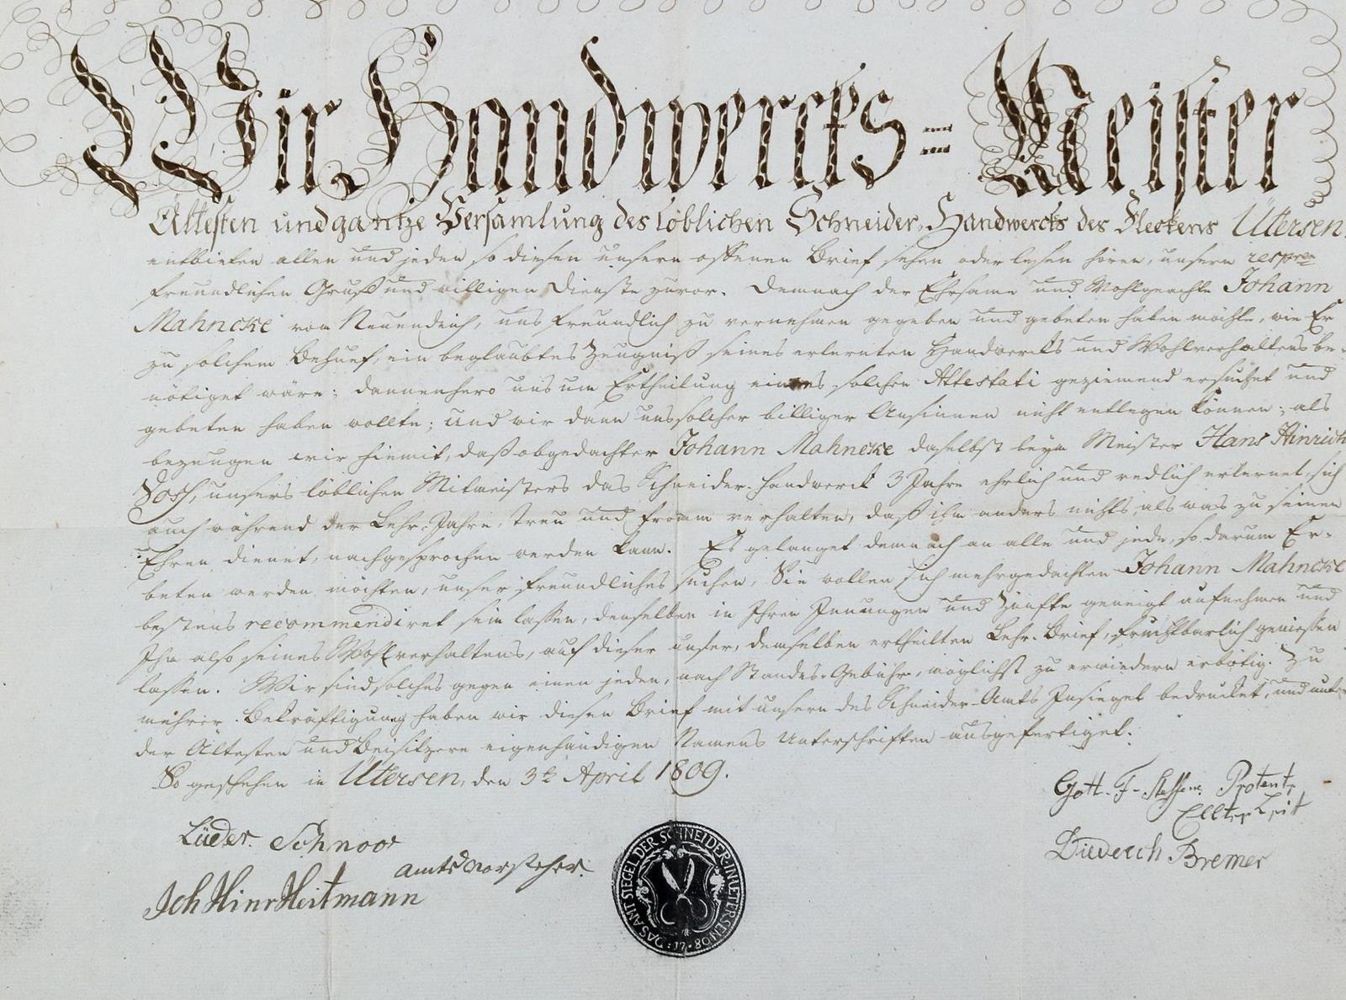 Wir Handwercks=Meister
Ältesten und gantze Versamlung des Löblichen Schneider-Handwercks des Fleckens Ütersen
entbieten allen und jeden so diesen unsern offenen Brief sehen oder lesen hören, unsern
freundlichen Gruß und willigen Dienste zuvor. Demnach der Ehrsame und Wohlgeachte Johann
Mahncke von Neuendeich, uns freundlich zu vernehmen gegeben und gebeten haben möchte, wie Er
zu solchem Behuef, ein beglaubtes Zeugniß seines erlernten Handwercks und Wohlverhaltens be-
nötiget wäre; dannenhero uns um Ertheilung eines solchen Attestati geziemend ersuchet und
gebeten haben wollte; und wir dann uns solcher billiger Ansinnen nicht entlegen können; als
bezeugen wir hiemit, daß obgedachter Johann Mahncke daselbst beym Meister Hans Hinrich
Vosß, unsers löblichen Mitmeisters das Schneider-Handwerck 3 Jahre ehrlich und redlich erlernet, sich
auch während der Lehr-Jahre, treu und fromm verhalten, daß ihm anders nichts als was zu seinen
Ehren dienet, nachgesprochen werden kann. Es gelanget demnach an alle und jede, so darum Er-
beten werden möchten, unser freundliches suchen, Sie wollen sich mehrgedachten Johann Mahncke
bestens recommendiret sein lassen, denselben in Ihren Innungen und Zünfte geneigt aufnehmen und
Ihn also seines Wohlverhaltens, auf dieser unser, demselben ertheilten Lehr-Brief, fruchtbarlich geniessen
lassen. Wir sind solches gegen einen jeden, nach Standes-Gebühr, möglichst zu erwiedern erbötig. Zu
mehrer Bekräftigung haben wir diesen Brief mit unsern des Schneider-Amts Insiegel bedrucket, und unt-
der Ältesten und Beisitzern eigenhändigen Namens Unterschriften ausgefertiget.
So geschehen in Ütersen, den 3t April 1809.
Gott. F.
Lüder Schnoor
Amtsvorsteher
Diederich Bremer
Joh Hinr Heitmann
DAS AMT SIEGEL DER SCHNEIDER IN UETERSEN 1780